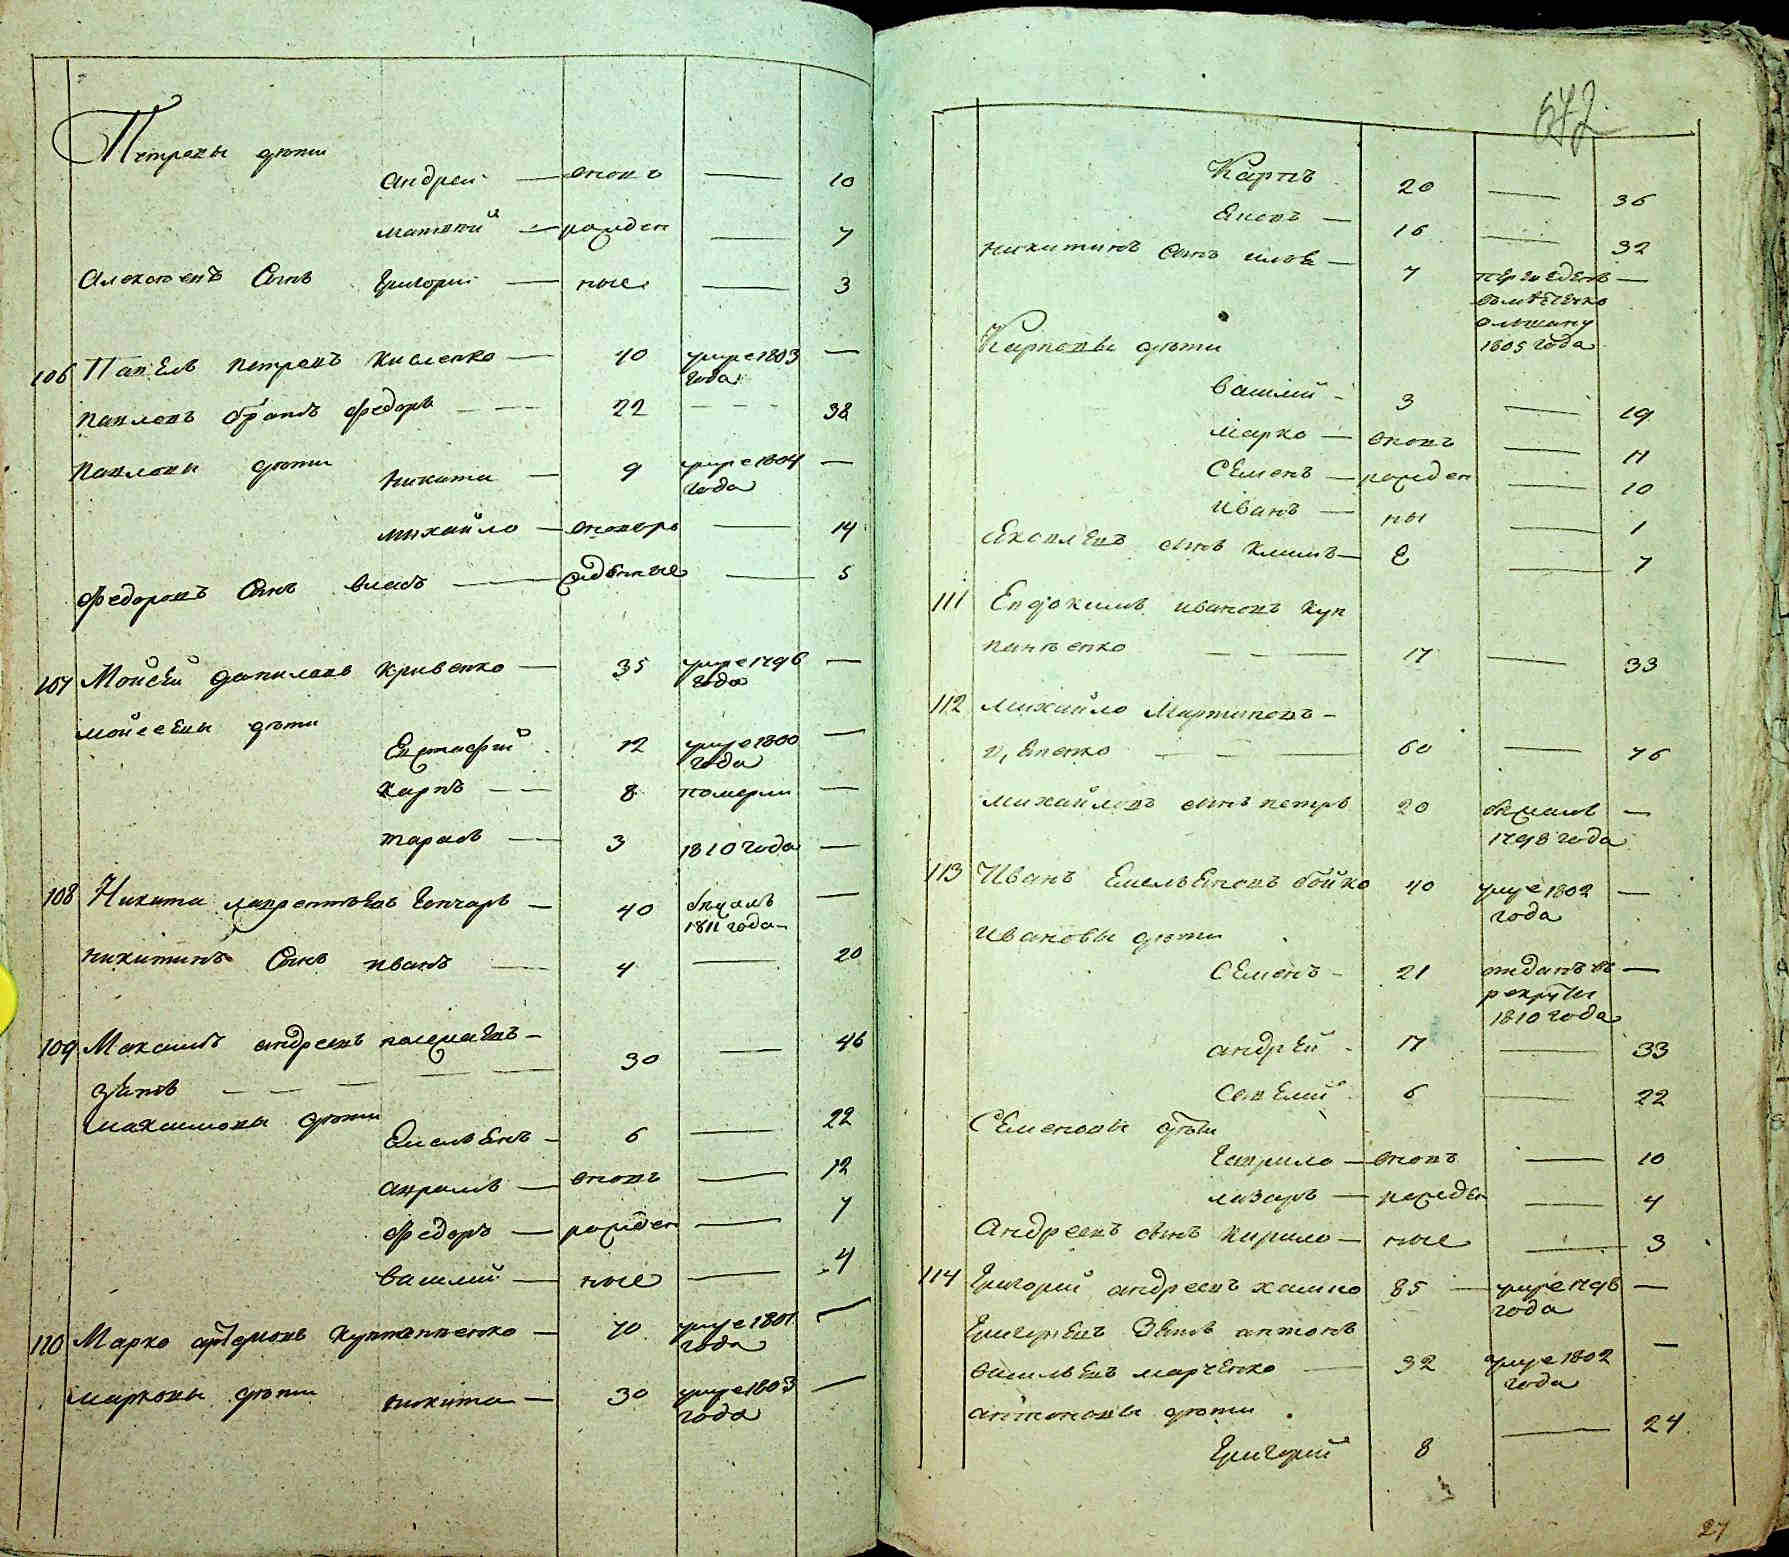 Петровы дети
Андрей — вновь — 10
Матвей — рожден — 7
Алексеевъ сынъ Григорий — ные — 3
106 Павелъ Петровъ Кисленко — 40 умре 1803 —
года
Павловъ братъ Федоръ — — 22 — — — 38
Павловы дети
Никита — 9 умре 1804 —
года
Михайло — вновьро — 14
Федоровъ сынъ Власъ — жденные — 5
107 Мойсей Даниловъ Кривенко — 35 умре 1796 —
года
Мойсеевы дети
Евстафий 12 умре 1800 —
года
Карпъ — — 8 померли —
Тарасъ — 3 1810 года —
108 Никита Лаврентьевъ Гончаръ — 40 бежалъ —
1811 года
Никитинъ сынъ Иванъ — 4 — 20
109 Максимъ Андреевъ — 30 — 46
зять — — — — —
Максимовы дети
Емельянъ — 6 — 22
Аврамъ — вновь — 12
Федоръ — рожден — 7
Василий — ные — 4
110 Марко Артемовъ — 70 умре 1801 —
года
Марковы дети Никита — 30 умре 1803 —
года
542
Карпъ 20 — 36
Яковъ — 16 — 32
Никитинъ сынъ Илья — 7 переведенъ —
Ольшану
1805 года
Карповы дети
Василий — 3 — 19
Марко — вновь — 11
Семенъ — рожден — 10
Иванъ — ны — 1
Яковлевъ сынъ Климъ — 7
111 Евдокимъ Ивановъ Куп
— — — 17 — 33
112 Михайло Мартиновъ —
— — — 60 — 76
Михайловъ сынъ Петръ 20 бежалъ —
1798 года
113 Иванъ Емельяновъ Бойко 40 умре 1802 —
года
Ивановы дети
Семенъ — 21 отданъ въ —
рекруты
1810 года
Андрей — 17 — 33
Савелий 6 — 22
Семеновы дети
Гаврило — вновь — 10
Лазарь — рожден — 4
Андреевъ сынъ Кирило — ные — 3
114 Григорий Андреевъ 85 — умре 1796 —
года
Григорьевъ зять Антонъ
Васильевъ Марченко — 32 умре 1802 —
года
Антоновы дети
Григорий 8 — 24
27